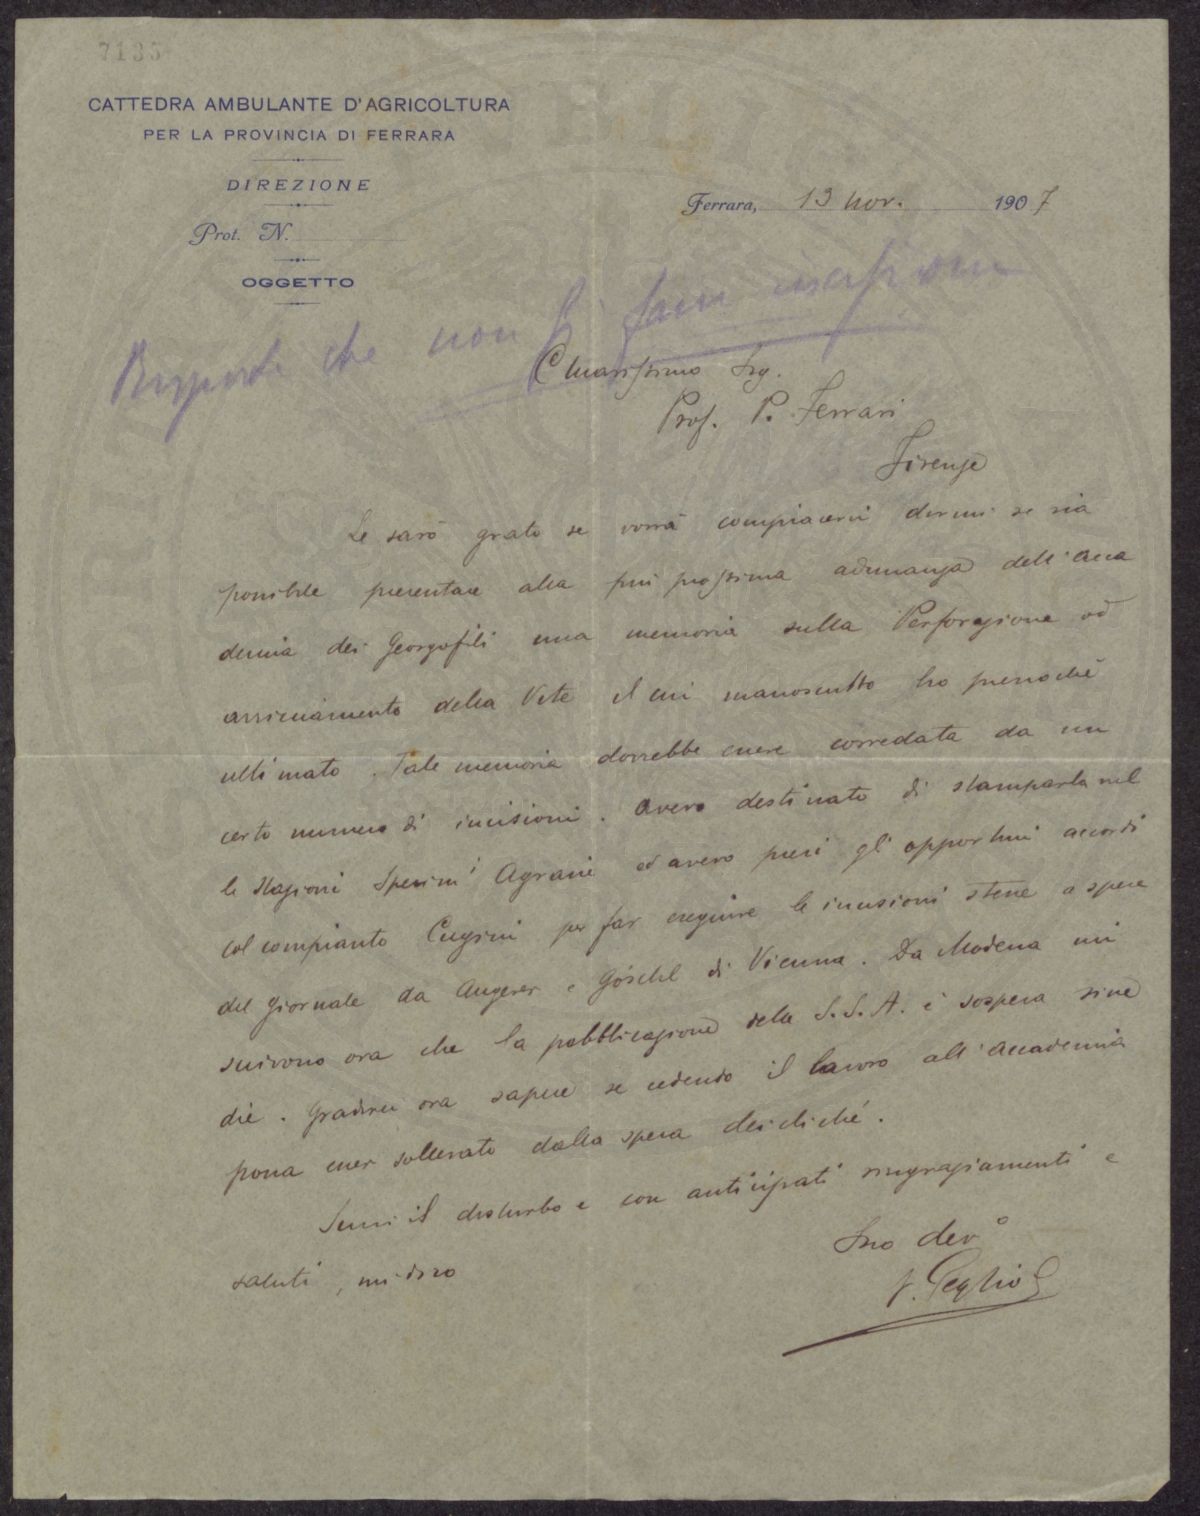 7135
CATTEDRA AMBULANTE D'AGRICOLTURA
PER LA PROVINCIA DI FERRARA
DIREZIONE
Prot. N.
OGGETTO
Ferrara, 13 nov. 1907
Risposta che non si fanno incisioni
Chiarissimo Sig.
Prof. P. Ferrari
Firenze
Le sarò grato se vorrà compiacersi dirmi se sia
possibile presentare alla più prossima adunanza dell'Acca
demia dei Georgofili una memoria sulla Perforazione od
arricciamento della Vite il cui manoscritto ho pressoché
ultimato. Tale memoria dovrebbe essere corredata da un
certo numero di incisioni. Avevo destinato di stamparla nel
le Stazioni Sperim' Agrarie ed avevo presi gli opportuni accordi
col compianto Cugini per far eseguire le incisioni stesse a spese
del giornale da Angerer e Göschl di Vienna. Da Modena mi
scrivono ora che la pubblicazione delle S.S.A. è sospesa sine
die. Gradirei ora sapere se cedendo il lavoro all'Accademia
possa esser sollevato dalla spesa dei cliché.
Scusi il disturbo e con anticipati ringraziamenti e
saluti, mi dico
Suo dev°
V. Peglion